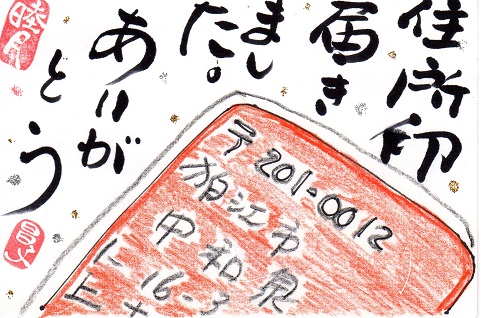 住所印
届き
まし
た。
ありが
とう
〒201-0012
狛江市
中和泉
1-16-3
睦月